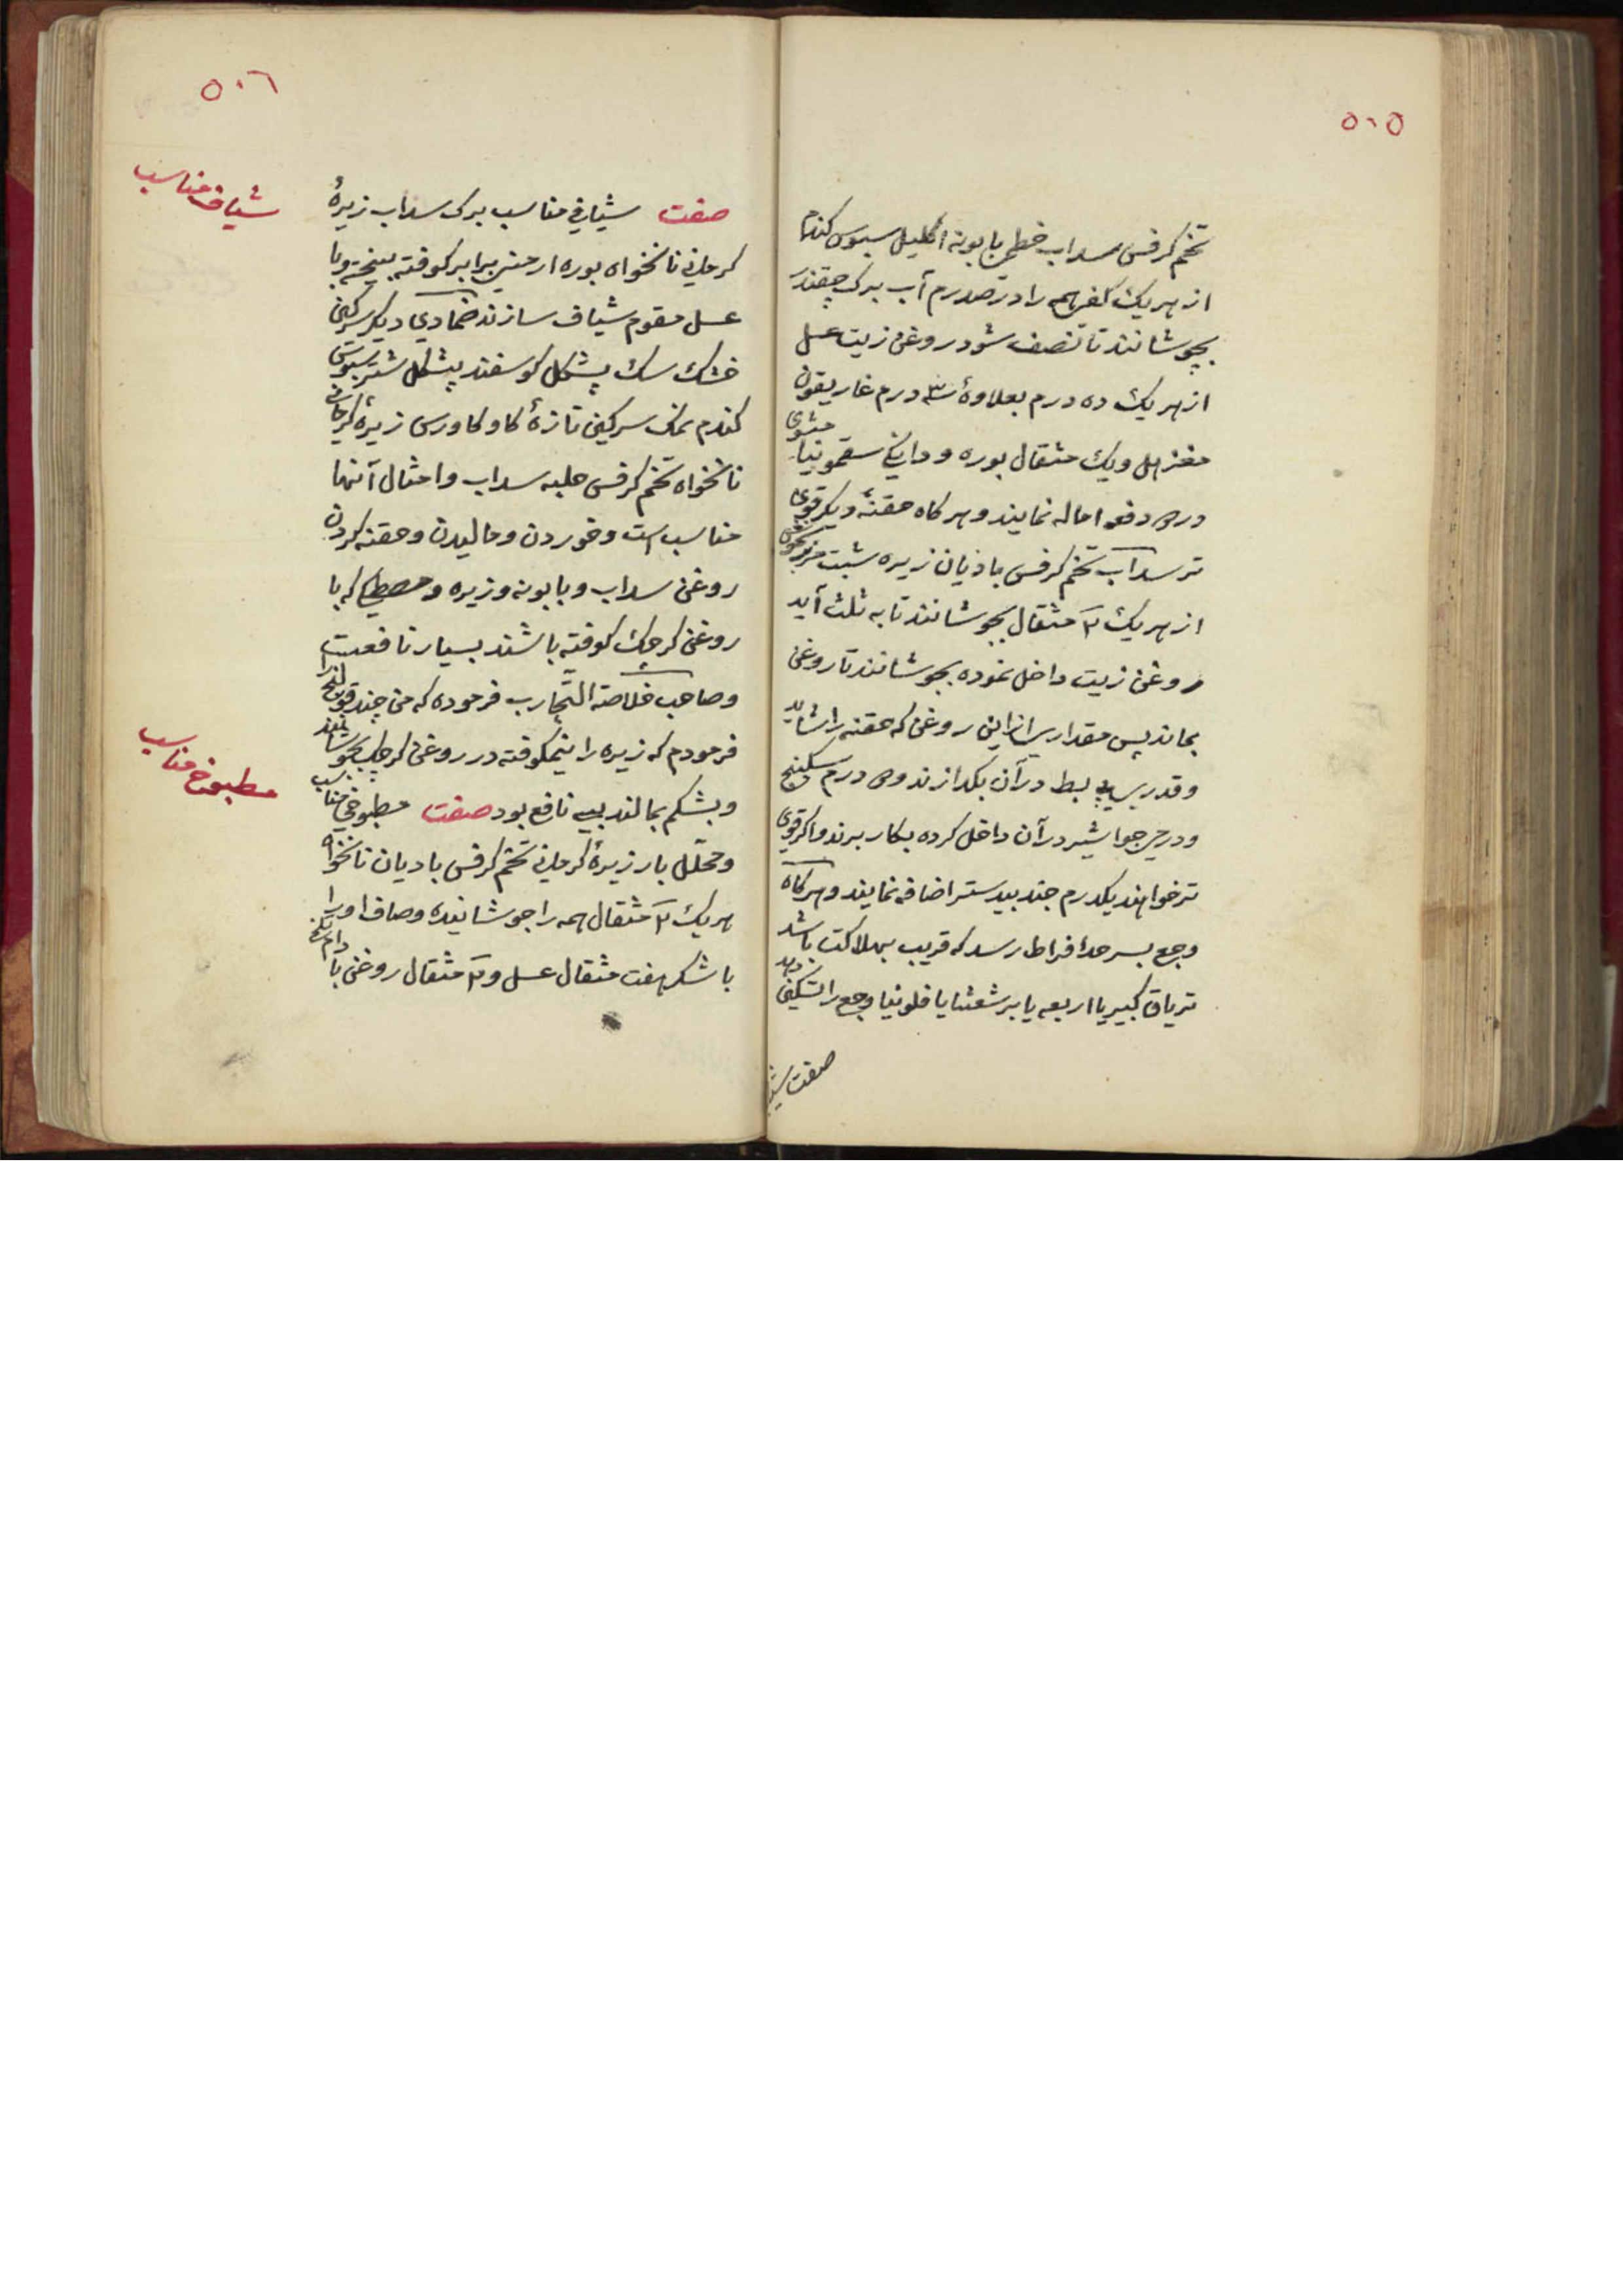 ۵۰۵
تخم کرفس سداب خطمی بابونه اکلیل سبوس کندم
از هر یک کفی همه را در صد درم آب برک چقندر
بجوشانند تا نصف شود روغن زیت عسل
از هر یک ده درم بعلاوهٔ سه درم غاریقون
مغربل ویک مثقال بوره و دانکی سقمونیا مشوی
در دو دفعه اماله نمایند و هر کاه حقنهٔ دیکر قوی
تر سداب تخم کرفس باذیان زیره شبت مرزنجوش
از هر یک ۲ مثقال بجوشانند تا به ثلث آید
روغن زیت داخل نموده بجوشانند تا روغن
بماند پس مقداری از این روغن که حقنه را شاید
و قدری پیه بط در آن بکدازند و دو درم سکبینج
و درمی جواشیر در آن داخل کرده بکار برند و اکر قوی
تر خواهند یکدرم جندبیدستر اضافه نمایند و هر کاه
وجع بسر حد افراط رسد که قریب بهلاکت باشد
تریاق کبیر یا اربعه یا برشعثا یا فلونیا وجع را تسکین دهد
صفت
۵۰۶
شیاف مناسب
صفت شیافی مناسب برک سداب زیرهٔ
کرمانی نانخواه بوره ارمنی برابر کوفته بیخته و با
عسل مقوم شیاف سازند ضمادی دیکر سرکین
خشک سک پشکل کوسفند پشکل شتر سبوس
کندم نمک سرکین تازهٔ کاو کاورس زیرهٔ کرمانی
نانخواه تخم کرفس حلبه سداب و امثال آنها
مناسب است و خوردن و مالیدن و حقنه کردن
روغن سداب و بابونه و زیره و مصطکی که با
روغن کرچک کوفته باشند بسیار نافعست
و صاحب خلاصة التجارب فرموده که من چند قولنج را
فرمودم که زیره را نیمکوفته در روغن کرچک بجوشانند
و بشکم بمالند بسی نافع بود صفت مطبوخی مناسب
مطبوخ مناسب
و محلّل بار زیرهٔ کرمانی تخم کرفس بادیان نانخواه
هر یک ۲ مثقال همه را جوشانیده و صاف او را
با شکر هفت مثقال عسل و ۳ مثقال روغن بادام تلخ